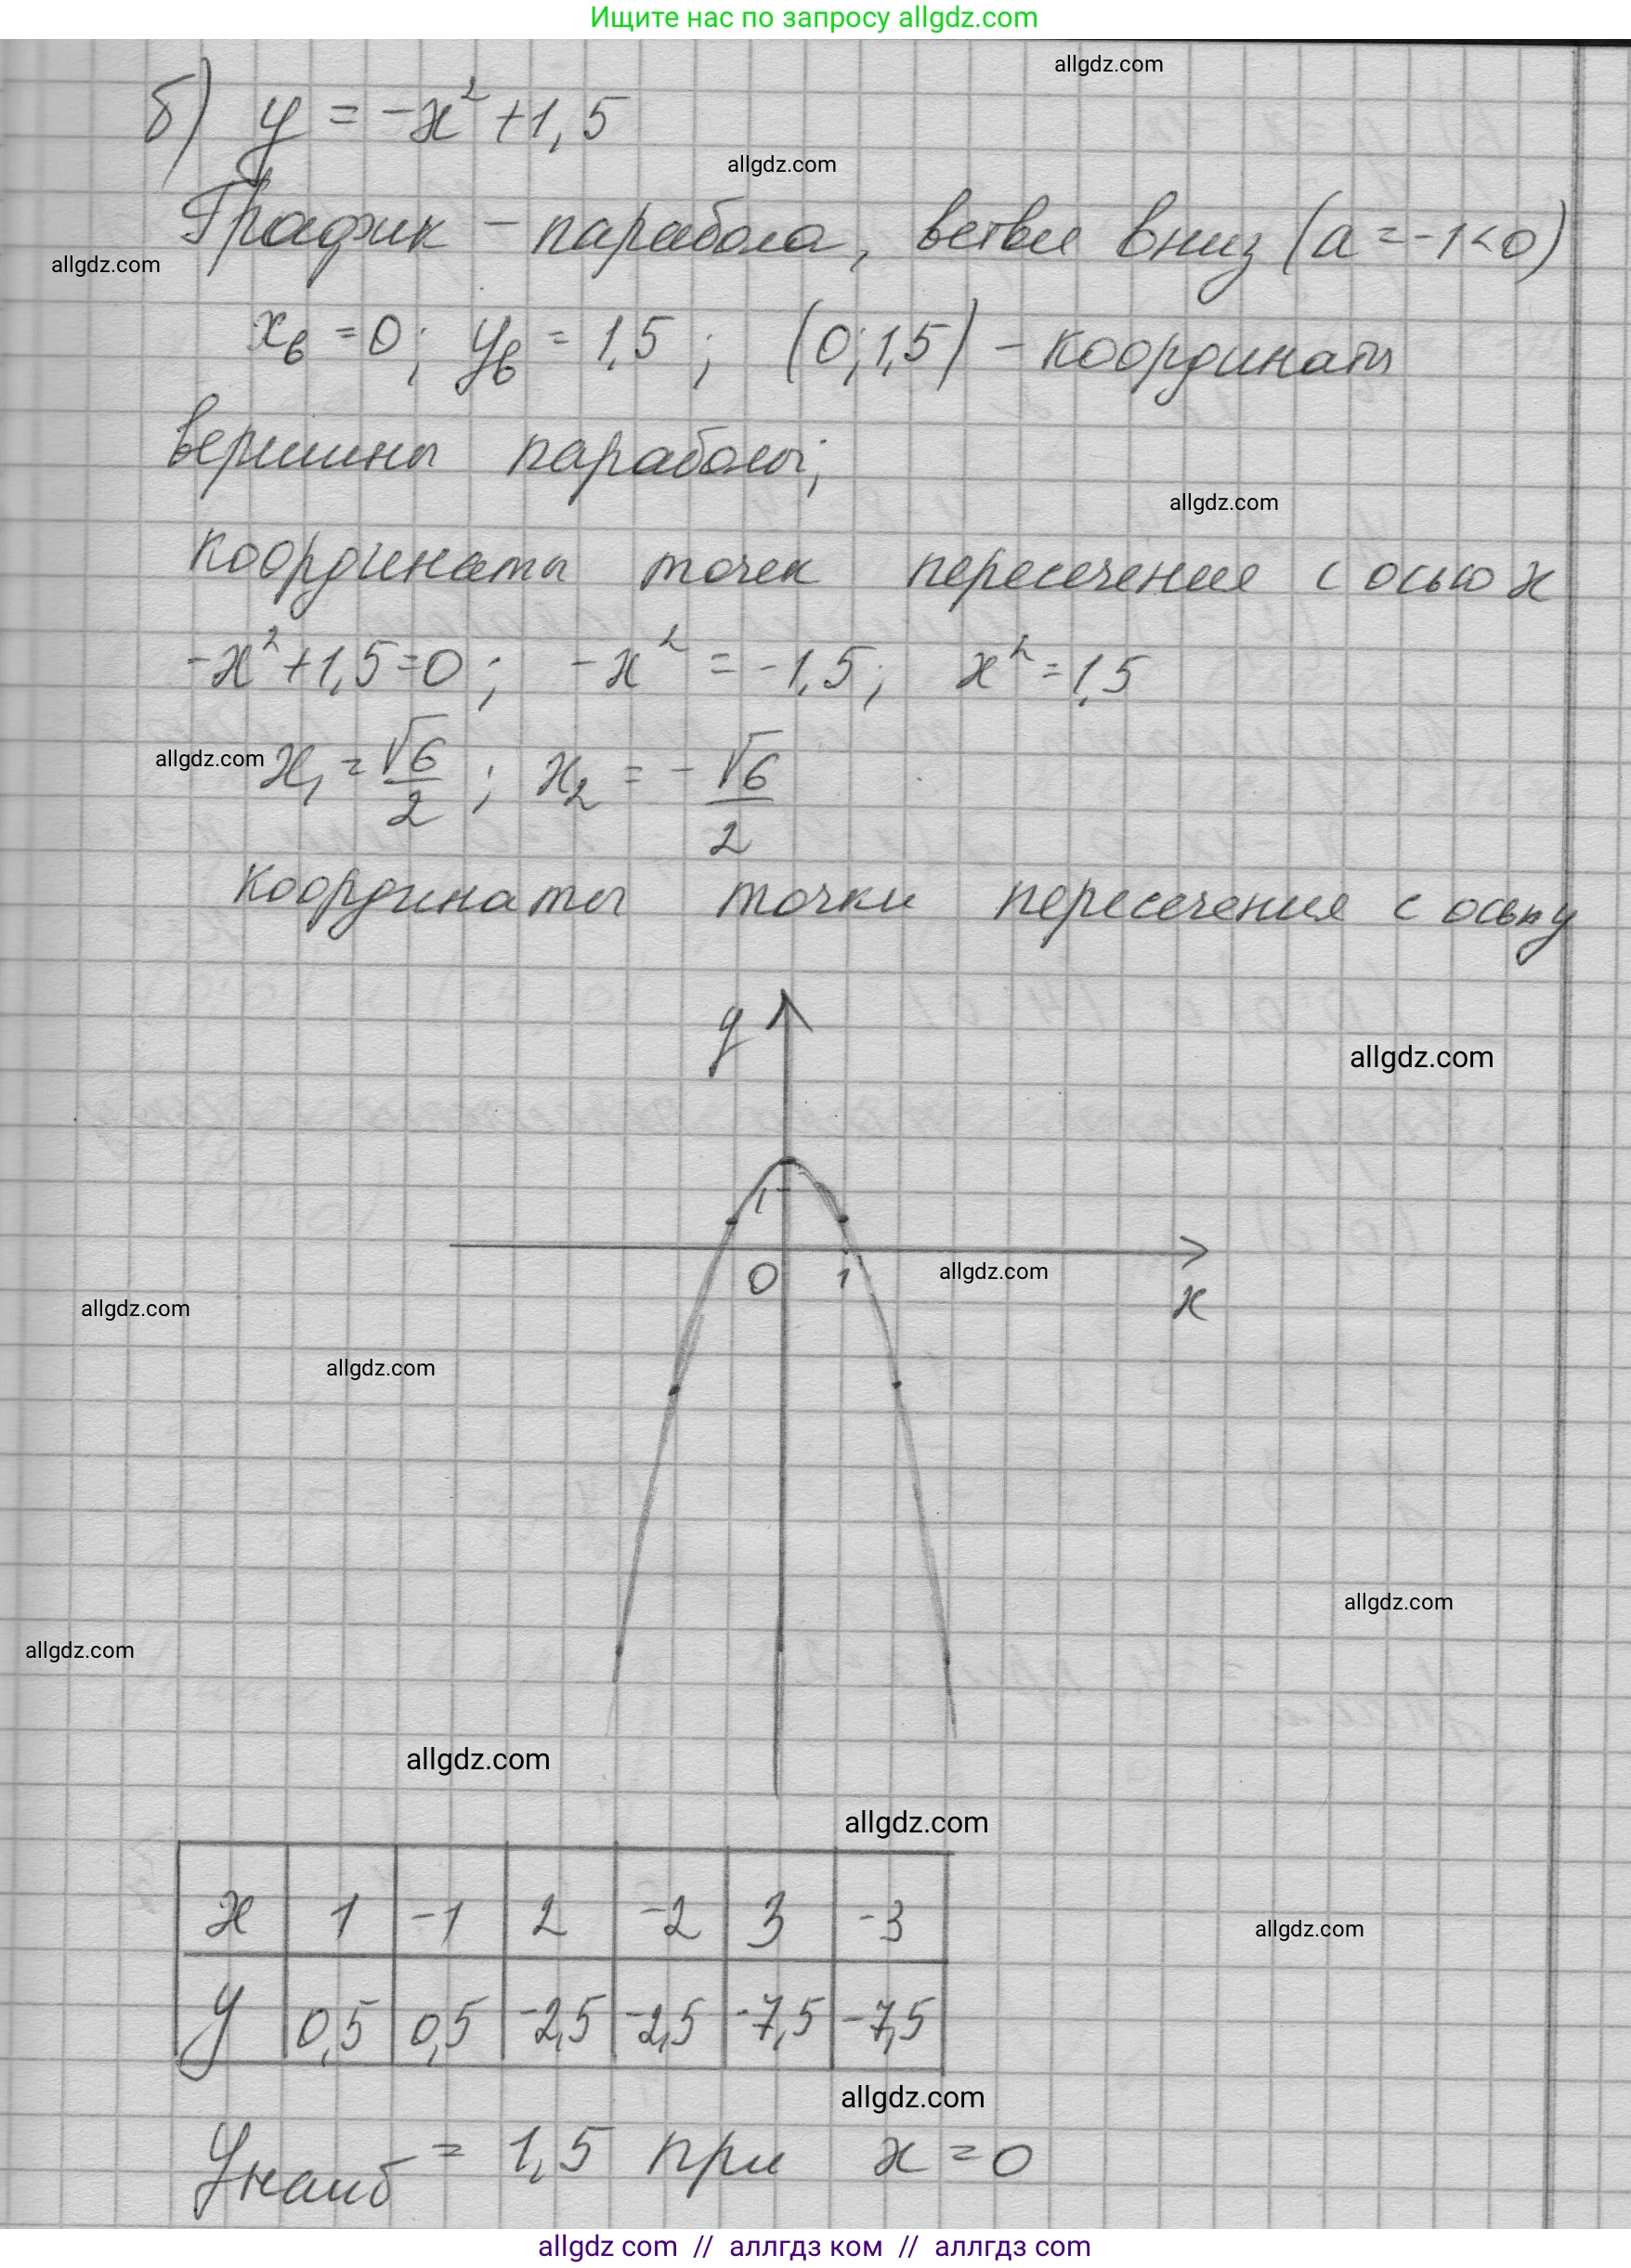 Ищите нас по запросу allgdz.com
allgdz.com
б) y = -x² + 1,5
allgdz.com
График - парабола, ветви вниз (a = -1 < 0)
allgdz.com
xв = 0; yв = 1,5; (0; 1,5) - координаты
вершины параболы;
allgdz.com
координаты точек пересечения с осью x
-x² + 1,5 = 0; -x² = -1,5; x² = 1,5
allgdz.com
x₁ = √6/2; x₂ = -√6/2
координаты точки пересечения с осью y
y
allgdz.com
1
0 1 allgdz.com
x
allgdz.com
allgdz.com
allgdz.com
allgdz.com
allgdz.com
allgdz.com
x 1 -1 2 -2 3 -3
allgdz.com
y 0,5 0,5 -2,5 -2,5 -7,5 -7,5
allgdz.com
yнаиб = 1,5 при x = 0
allgdz com // аллгдз ком // аллгдз com